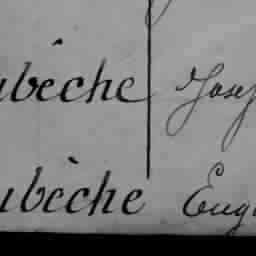 ubèche Josep
ubèche Eugè